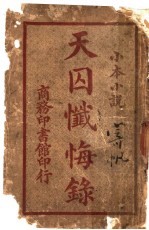 小本小說
天囚懺悔錄
商務印書館印行